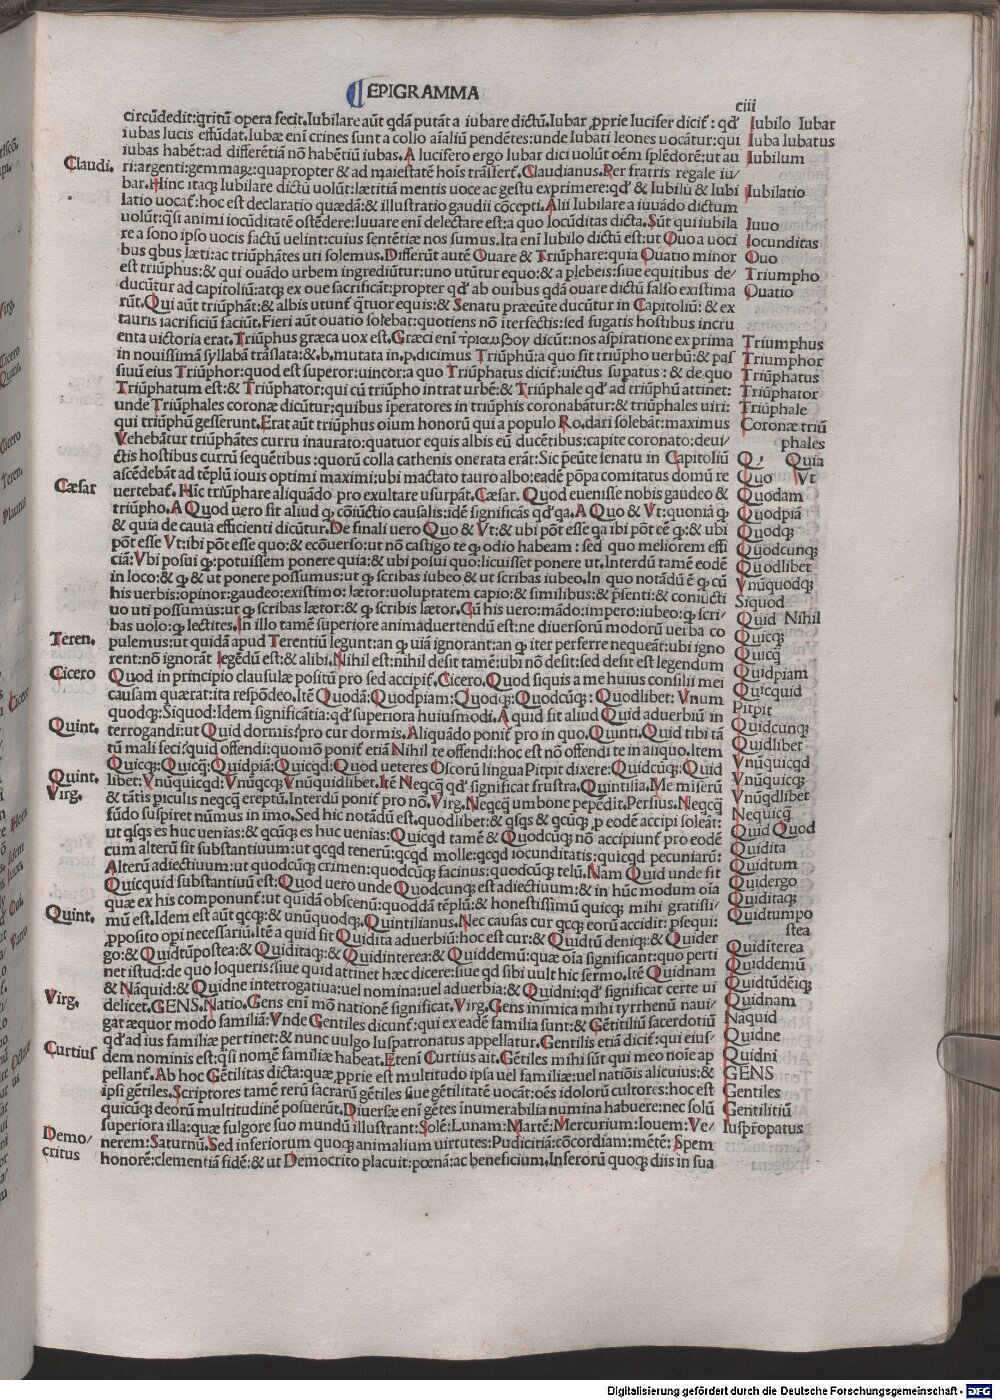 EPIGRAMMA
ciii
circūdedit:qritū opera fecit.Iubilare aūt qdā putāt a iubare dictū.Iubar ꝓprie lucifer dicit̄: qd'
iubas lucis effūdat.Iubæ enī crines sunt a collo aīaliū pendētes:unde Iubati leones uocātur:qui
iubas habēt:ad differētiā nō habētiū iubas.A lucifero ergo Iubar dici uolūt oēm splēdorē:ut au
ri:argenti:gemmaꝝ:quapropter & ad maiestatē hoīs trāsfert̄.Claudianus.Per fratris regale iu/
bar.Hinc itaqꝫ Iubilare dictū uolūt:lætitiā mentis uoce ac gestu exprimere:qd' & Iubilū & Iubi
latio uocat̄:hoc est declaratio quædā:& illustratio gaudii cōcepti.Alii Iubilare a iuuādo dictum
uolūt:qsi animi iocūditatē ostēdere:Iuuare enī delectare est:a quo Iocūditas dicta.Sūt qui iubila
re a sono ipso uocis factū uelint:cuius sentētiæ nos sumus.Ita enī Iubilo dictū est:ut Ouo a uoci
bus qbus læti:ac triūphātes uti solemus.Differūt autē Ouare & Triūphare:quia Ouatio minor
est triūphus:& qui ouādo urbem ingrediūtur:uno utūtur equo:& a plebeis:siue equitibus de/
ducūtur ad capitoliū:atqꝫ ex oue sacrificāt:propter qd' ab ouibus qdā ouare dictū falso existima
rūt.Qui aūt triūphāt:& albis utunt̄ q̄tuor equis:& Senatu præeūte ducūtur in Capitoliū: & ex
tauris sacrificiū faciūt.Fieri aūt ouatio solebat:quotiens nō īterfectis:sed fugatis hostibus incru
enta uictoria erat.Triūphus græca uox est.Græci enī τριαμβον dicūt:nos aspiratione ex prima
in nouissimā syllabā trāslata:&.b.mutata in.p.dicimus Triūphū:a quo fit triūpho uerbū:& pas
siuū eius Triūphor:quod est superor:uincor:a quo Triūphatus dicit̄:uictus supatus: & de quo
Triūphatum est:& Triūphator:qui cū triūpho intrat urbē:& Triūphale qd' ad triūphū attinet:
unde Triūphales coronæ dicūtur:quibus īperatores in triūphis coronabātur:& triūphales uiri:
qui triūphū gesserunt.Erat aūt triūphus oīum honorū qui a populo Ro.dari solebāt:maximus
Vehebātur triūphātes curru inaurato:quatuor equis albis eū ducētibus:capite coronato:deui/
ctis hostibus currū sequētibus :quorū colla cathenis onerata erāt:Sic p̄eūte senatu in Capitoliū
ascēdebāt ad tēplū iouis optimi maximi:ubi mactato tauro albo:eadē pōpa comitatus domū re
uertebat̄.Hīc triūphare aliquādo pro exultare usurpāt.Cæsar.Quod euenisse nobis gaudeo &
triūpho.A Quod uero fit aliud ꝙ cōiūctio causalis:idē significās qd' qa.A Quo & Vt:quoniā ꝙ
& quia de causa efficienti dicūtur.De finali uero Quo & Vt:& ubi pōt esse qa ibi pōt eē ꝙ:& ubi
pōt esse Vt:ibi pōt esse quo:& ecōuerso:ut nō castigo te ꝙ odio habeam : sed quo meliorem effi
ciā:Vbi posui ꝙ:potuissem ponere quia:& ubi posui quo:licuisset ponere ut.Interdū tamē eodē
in loco:& ꝙ & ut ponere possumus:ut ꝙ scribas iubeo & ut scribas iubeo.In quo notādū ē ꝙ cū
his uerbis:opinor:gaudeo:existimo: lætor:uoluptatem capio:& similibus:& p̄senti:& coniūcti
uo uti possumus:ut ꝙ scribas lætor:& ꝙ scribis lætor.Cū his uero:mādo:impero:iubeo:ꝙ scri/
bas uolo:ꝙ lectites.In illo tamē superiore animaduertendū est:ne diuersorū modorū uerba co
pulemus:ut quidā apud Terentiū legunt:an ꝙ uiā ignorant:an ꝙ iter perferre nequeāt:ubi igno
rent:nō ignorāt legēdū est:& alibi.Nihil est:nihil desit tamē:ubi nō desit:sed desit est legendum
Quod in principio clausulæ positū pro sed accipit̄.Cicero.Quod siquis a me huius consilii mei
causam quærat:ita respōdeo.Itē Quodā:Quodpiam:Quodqꝫ:Quodcūqꝫ:Quodlibet:Vnum
quodqꝫ:Siquod:Idem significātia:qd' superiora huiusmodi.A quid fit aliud Quid aduerbiū in
terrogandi:ut Quid dormis:pro cur dormis.Aliquādo ponit̄ pro in quo.Qunti.Quid tibi tā
tū mali feci:quid offendi:quomō ponit̄ etiā Nihil te offendi:hoc est nō offendi te in aliquo.Item
Quicqꝫ:Quicq̄:Quidpiā:Quicqd:Quod ueteres Oscorū lingua Pitpit dixere:Quidcūqꝫ:Quid
libet:Vnūquicqd:Vnūqcqꝫ:Vnūquidlibet.Itē Neqcq̄ qd' significat frustra.Quintilia.Me miserū
& tātis piculis neqcq̄ ereptū.Interdū ponit̄ pro nō.Virg.Neqcq̄ umbone pepēdit.Persius.Neqcq̄
fūdo suspiret nūmus in imo.Sed hic notādū est.quodlibet:& qsqs & qcūqꝫ ꝓ eodē accipi soleāt:
ut qsqs es huc uenias:& qcūqꝫ es huc uenias:Quicqd tamē & Quodcūqꝫ nō accipiunt̄ pro eodē
cum alterū sit substantiuum:ut qcqd tenerū:qcqd molle:qcqd iocunditatis:quicqd pecuniarū:
Alterū adiectiuum:ut quodcūqꝫ crimen:quodcūqꝫ facinus:quodcūqꝫ telū.Nam Quid unde fit
Quicquid substantiuū est:Quod uero unde Quodcunqꝫ est adiectiuum:& in hūc modum oīa
quæ ex his componunt̄:ut quidā obscenū:quoddā tēplū:& honestissimū quicqꝫ mihi gratissi/
mū est.Idem est aūt qcqꝫ:& unūquodqꝫ.Quintilianus.Nec causas cur qcqꝫ eorū accidit: psequi:
ꝓposito opi necessariū.Itē a quid fit Quidita aduerbiū:hoc est cur:& Quidtū deniqꝫ:& Quider
go:& Quidtūpostea:& Quiditaqꝫ:& Quidinterea:& Quiddemū:quæ oīa significant:quo perti
net istud:de quo loqueris:siue quid attinet hæc dicere:siue qd sibi uult hic sermo.Itē Quidnam
& Nāquid:& Quidne interrogatiua:uel nomina:uel aduerbia:& Quidni:qd' significat certe ui
delicet.GENS.Natio.Gens enī mō nationē significat.Virg.Gens inimica mihi tyrrhenū naui/
gat æquor modo familiā:Vnde Gentiles dicunt̄:qui ex eadē familia sunt:& Gētitiliū sacerdotiū
qd' ad ius familiæ pertinet:& nunc uulgo Iuspatronatus appellatur.Gentilis etiā dicit̄:qui eius/
dem nominis est:qsi nomē familiæ habeat.Etenī Curtius ait.Gētiles mihi sūt qui meo noīe ap
pellant̄.Ab hoc Gētilitas dicta:quæ ꝓprie est multitudo ipsa uel familiæ:uel natiōis alicuius:&
ipsi gētiles.Scriptores tamē rerū sacrarū gētiles siue gētilitatē uocāt:oēs idolorū cultores:hoc est
quicūqꝫ deorū multitudinē posuerūt.Diuersæ enī gētes inumerabilia numina habuere:nec solū
superiora illa:quæ fulgore suo mundū illustrant:Solē:Lunam:Martē:Mercurium:Iouem:Ve/
nerem:Saturnū.Sed inferiorum quoqꝫ animalium uirtutes:Pudicitiā:cōcordiam:mētē: Spem
honorē:clementiā fidē:& ut Democrito placuit:pœnā:ac beneficium.Inferorū quoqꝫ diis in sua
Claudi.
Cæsar
Teren.
Cicero
Quint.
Quint.
Virg.
Quint.
Virg.
Curtius
Demo/
critus
Iubilo Iubar
Iuba Iubatus
Iubilum
Iubilatio
Iuuo
Iocunditas
Ouo
Triumpho
Ouatio
Triumphus
Triumphor
Triūphatus
Triūphator
Triūphale
Coronæ triū
phales
Q, Quia
Quo Vt
Quodam
Quodpiā
Quodqꝫ
Quodcunqꝫ
Quodlibet
Vnūquodqꝫ
Siquod
Quid Nihil
Quicqꝫ
Quicq̄
Quidpiam
Quicquid
Pitpit
Quidcunqꝫ
Quidlibet
Vnūquicqd
Vnūquicqꝫ
Vnūqdlibet
Nequicq̄
Quid Quod
Quidita
Quidtum
Quidergo
Quiditaqꝫ
Quidtumpo
stea
Quiditerea
Quiddemū
Quidtūdēiqꝫ
Quidnam
Naquid
Quidne
Quidni
GENS
Gentiles
Gentilitiū
Iusp̄ropatus
Digitalisierung gefördert durch die Deutsche Forschungsgemeinschaft - DFG